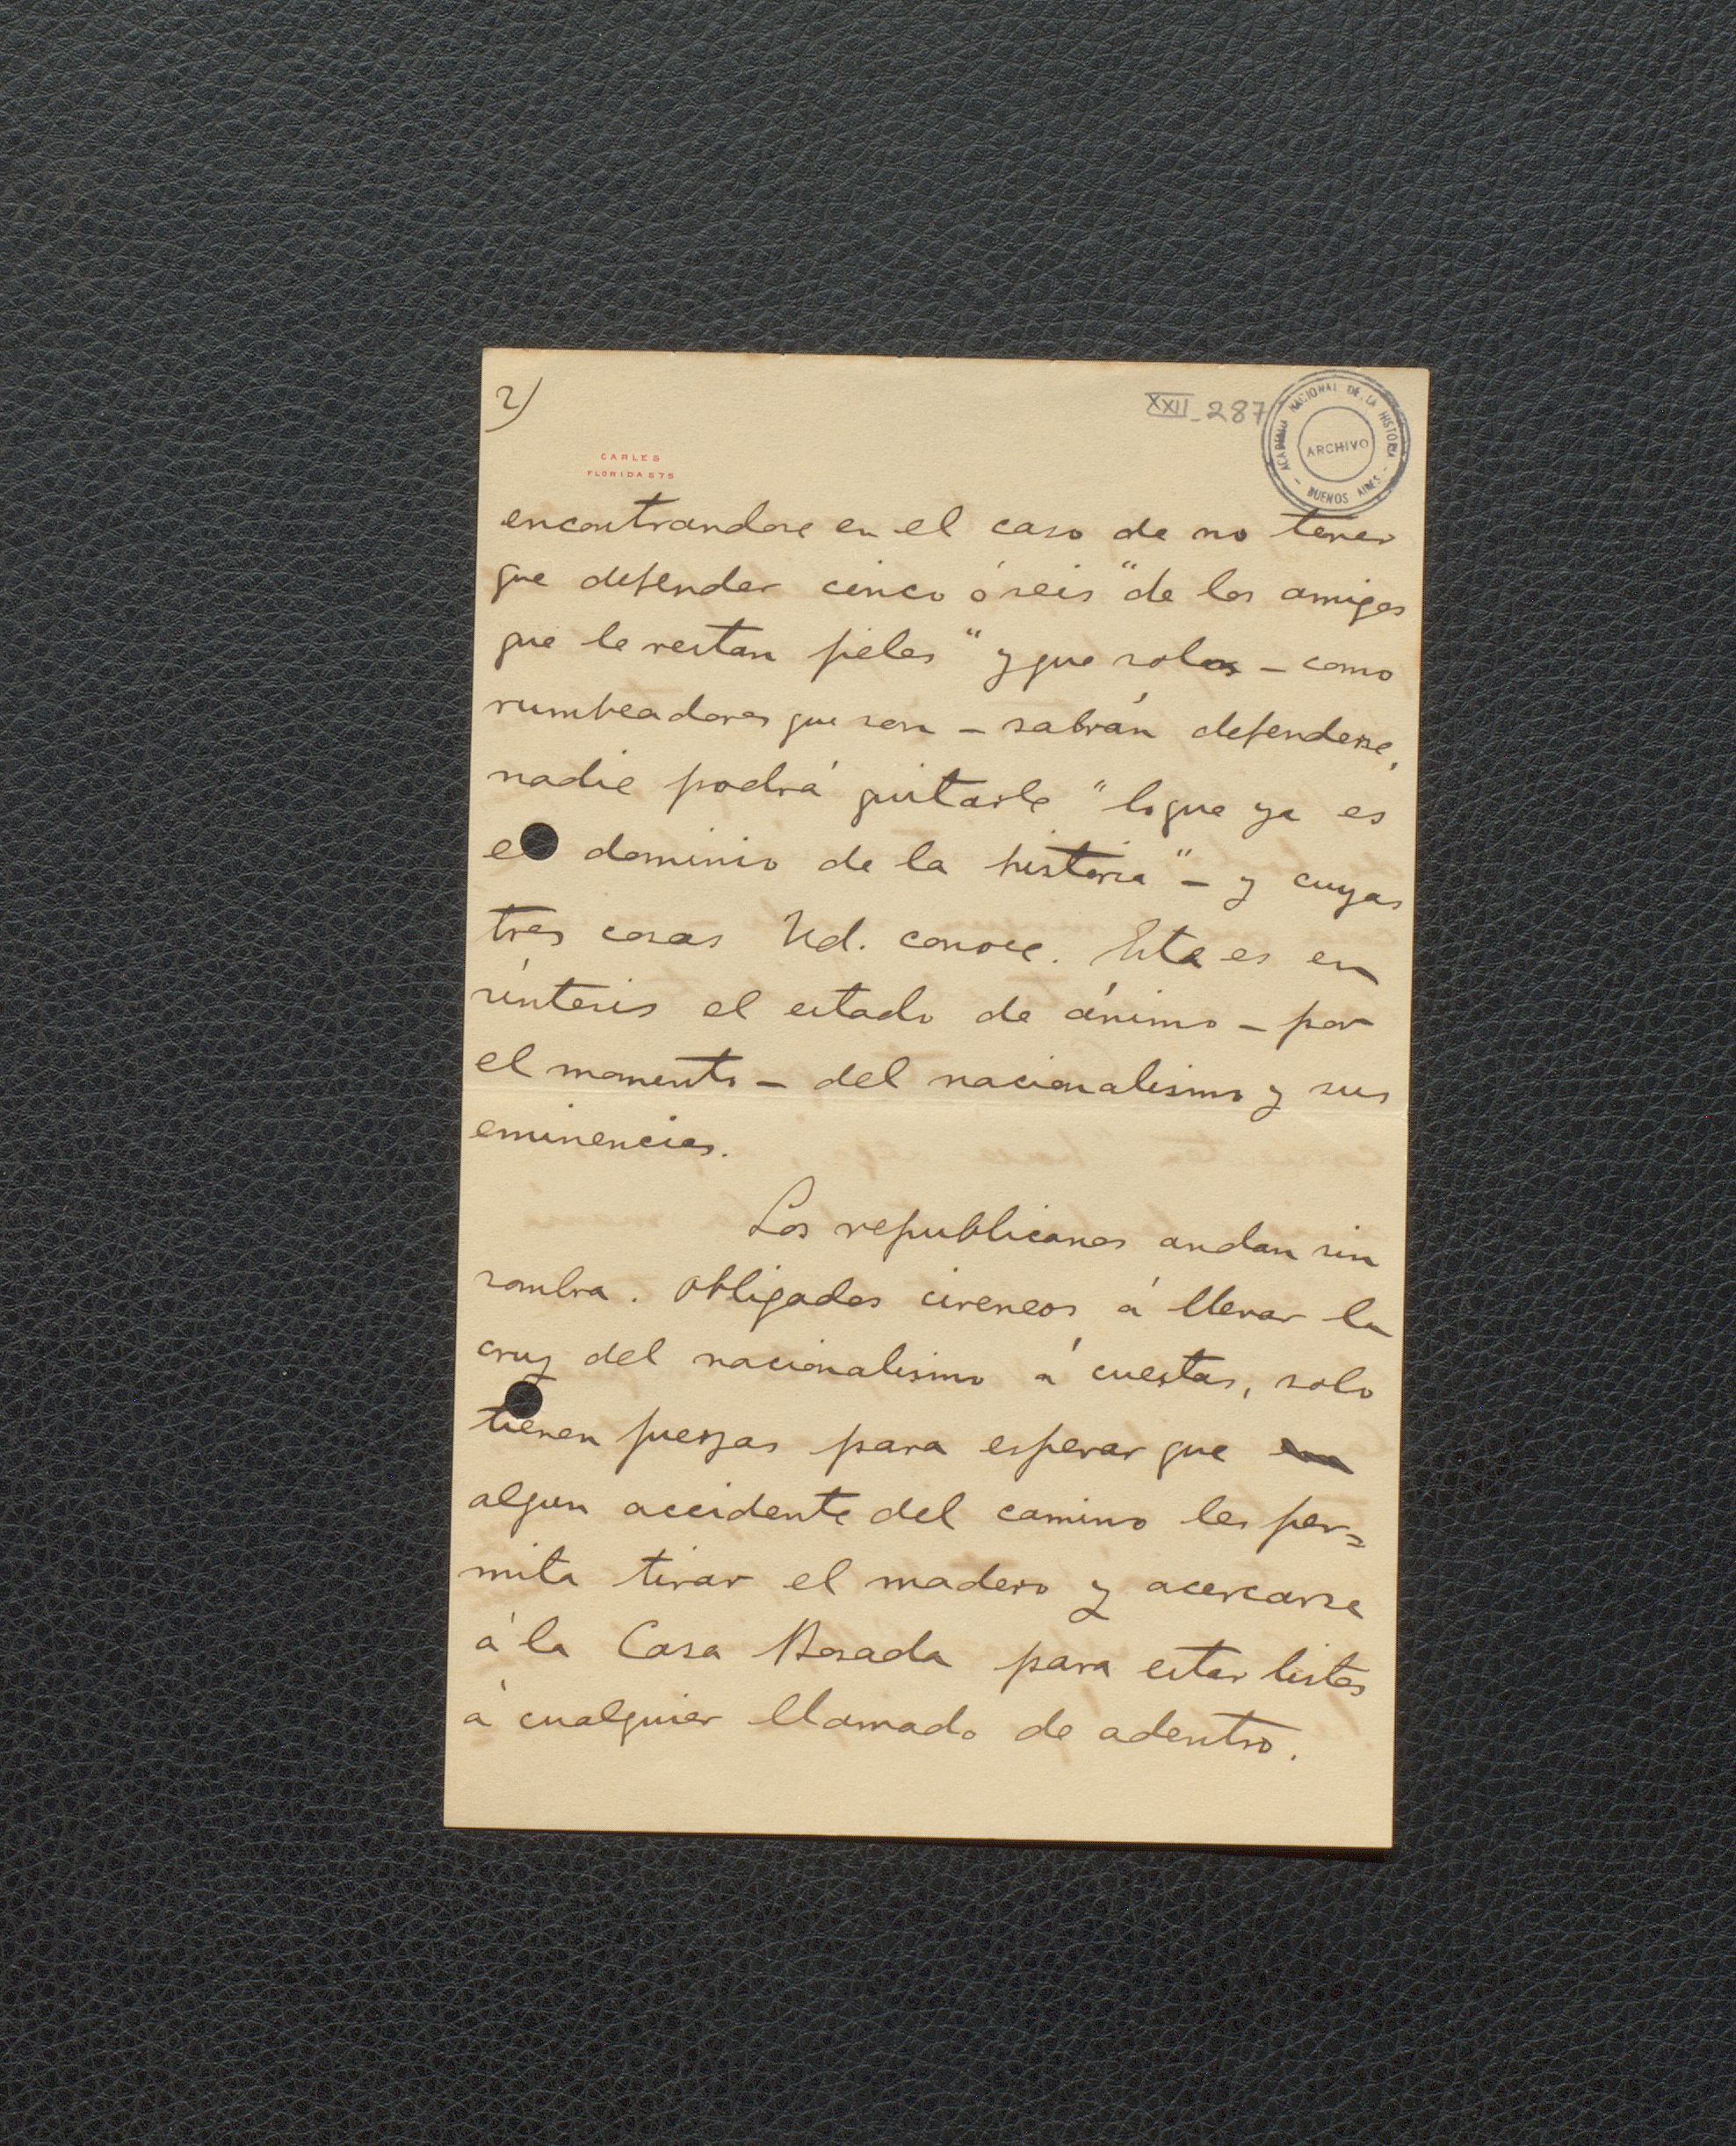 2)
XXII_287
ACADEMIA NACIONAL DE LA HISTORIA
ARCHIVO
- BUENOS AIRES -
CARLES
FLORIDA 575
encontrandose en el caso de no tener
que defender cinco ó seis "de los amigos
que le restan fieles" y que solos - como
rumbeadores que son - sabrán defenderse,
nadie podrá quitarle "lo que ya es
el dominio de la historia" - y cuyas
tres cosas Ud. conoce. Este es en
síntesis el estado de ánimo - por
el momento - del nacionalismo y sus
eminencias.
Los republicanos andan sin
sombra. Obligados cireneos á llevar la
cruz del nacionalismo á cuestas, solo
tienen fuerzas para esperar que
algun accidente del camino les per=
mita tirar el madero y acercarse
á la Casa Rosada para estar listos
á cualquier llamado de adentro.